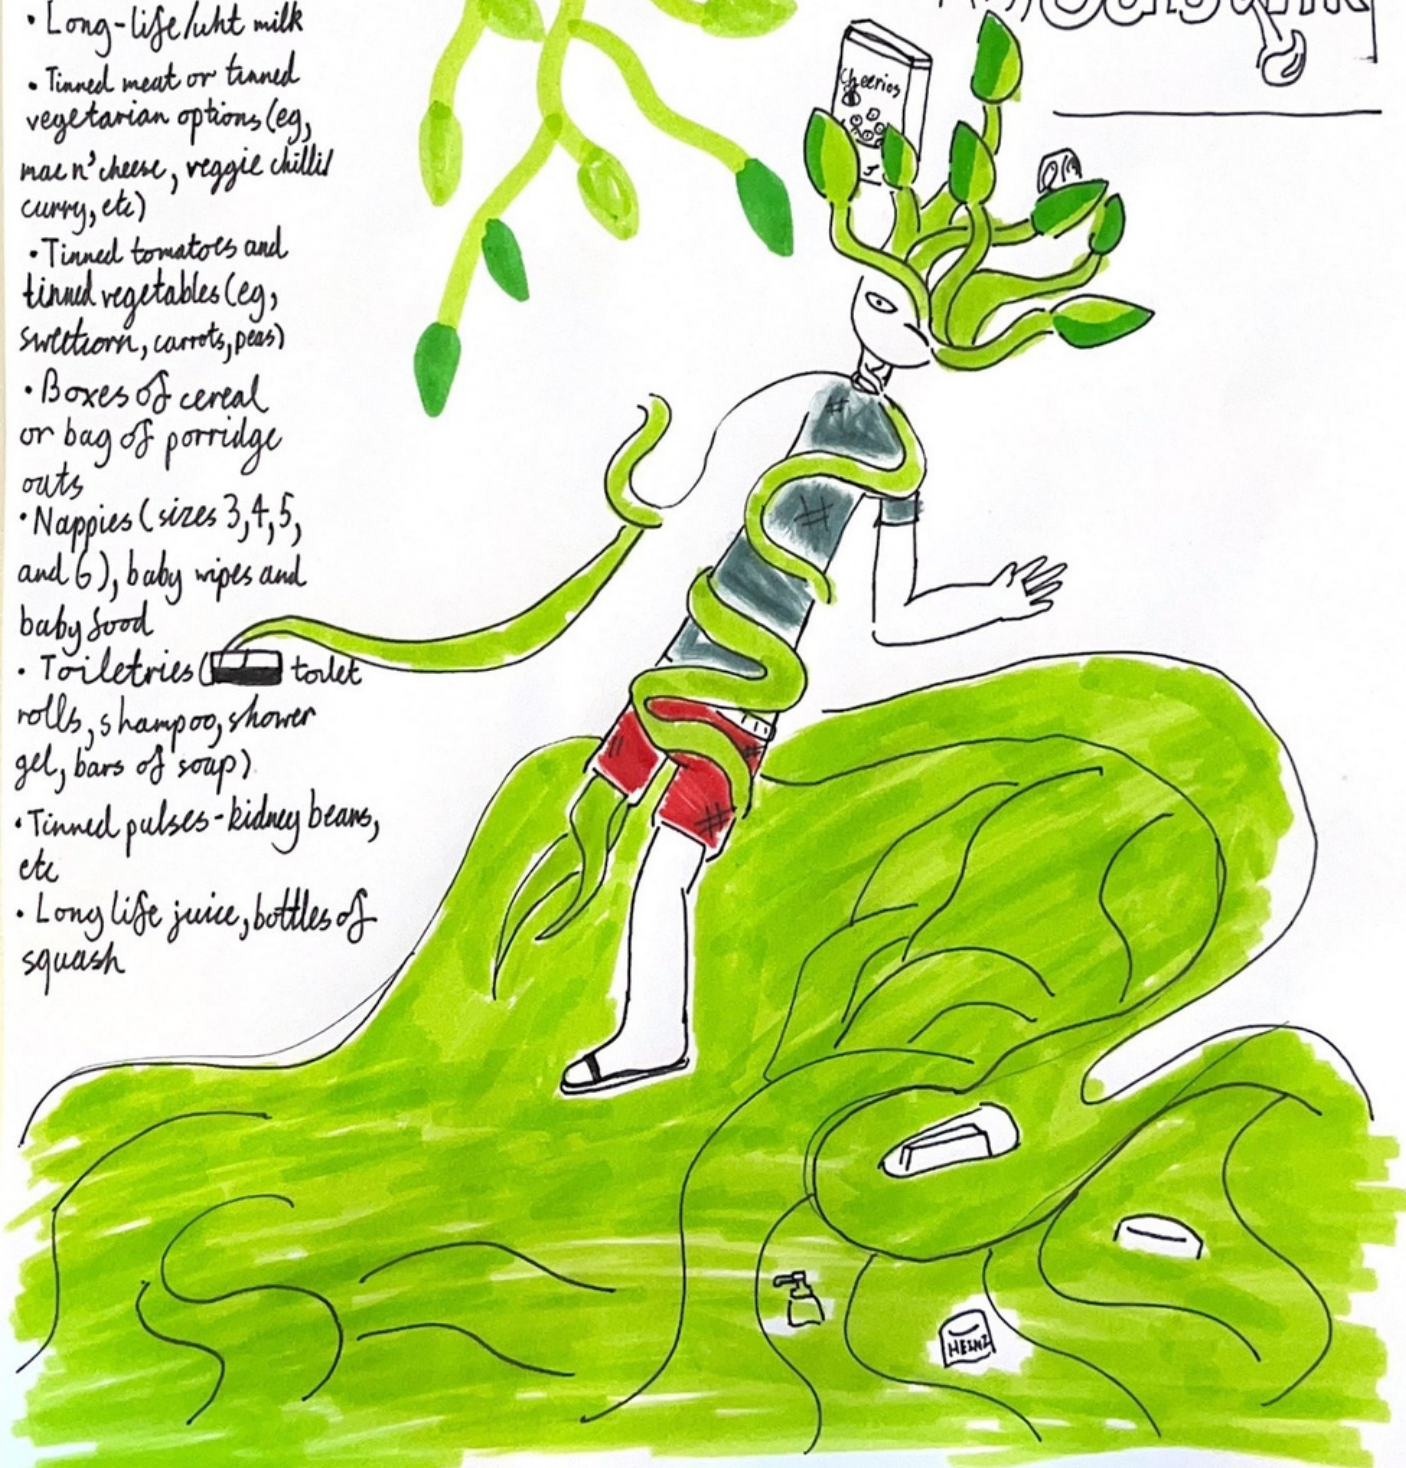 • Long-life/uht milk
• Tinned meat or tinned
vegetarian options (eg,
mac n' cheese, veggie chilli/
curry, etc)
• Tinned tomatoes and
tinned vegetables (eg,
sweetcorn, carrots, peas)
• Boxes of cereal
or bag of porridge
outs
• Nappies (sizes 3,4,5,
and 6), baby wipes and
baby food
• Toiletries ( toilet
rolls, shampoo, shower
gel, bars of soap)
• Tinned pulses - kidney beans,
etc
• Long life juice, bottles of
squash
Cheerios
HEINZ